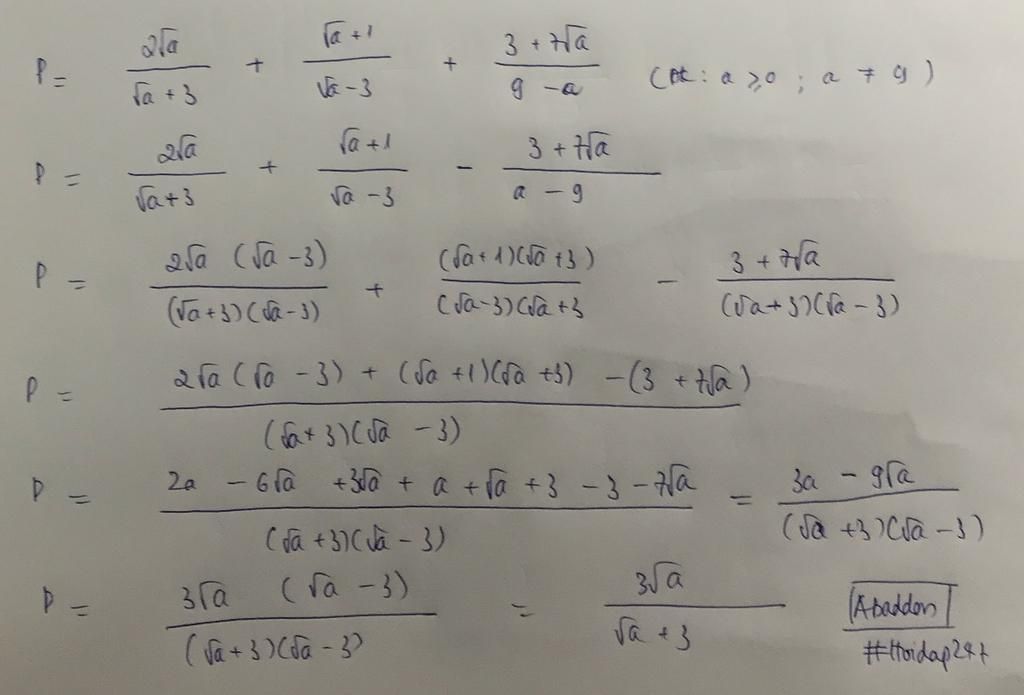 P = 2√a / (√a + 3) + (√a + 1) / (√a - 3) + (3 + 7√a) / (9 - a) (Đk : a ≥ 0 ; a ≠ 9)
P = 2√a / (√a + 3) + (√a + 1) / (√a - 3) - (3 + 7√a) / (a - 9)
P = 2√a (√a - 3) / (√a + 3)(√a - 3) + (√a + 1)(√a + 3) / (√a - 3)(√a + 3 - 3 + 7√a / (√a + 3)(√a - 3)
P = 2√a (√a - 3) + (√a + 1)(√a + 3) - (3 + 7√a) / (√a + 3)(√a - 3)
P = 2a - 6√a + 3√a + a + √a + 3 - 3 - 7√a / (√a + 3)(√a - 3) = 3a - 9√a / (√a + 3)(√a - 3)
P = 3√a (√a - 3) / (√a + 3)(√a - 3) = 3√a / √a + 3
Abaddon
#Hoidap247